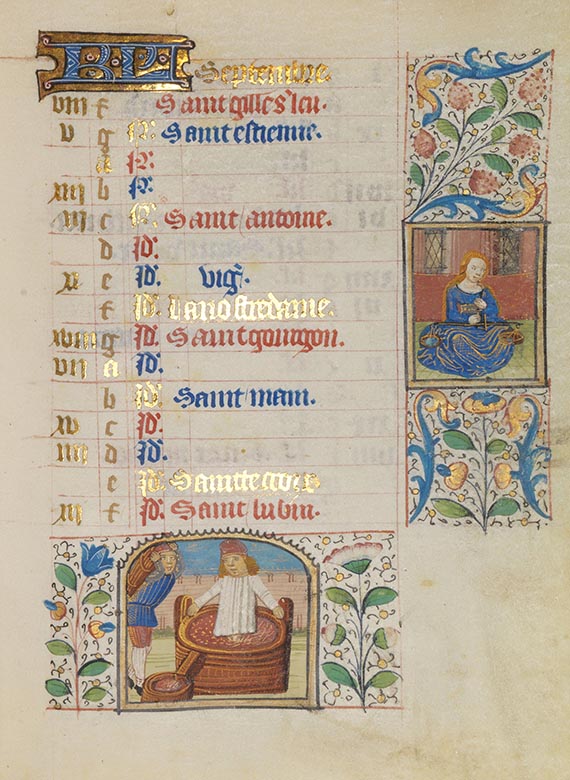 KL Septembre.
viii f Saint gilles s leu.
v g N̅. Saint estienne.
a N̅.
xiii b N̅.
ii c N̅. Saint antoine.
d Id̅.
x e Id̅. vig̅.
f Id̅. La nostredame.
xviii g Id̅. Saint gourgon.
vii a Id̅.
b Id̅. Saint main.
xv c Id̅.
iiii d Id̅.
e Id̅. Saintecroix
xii f Id̅. Saint lubin.